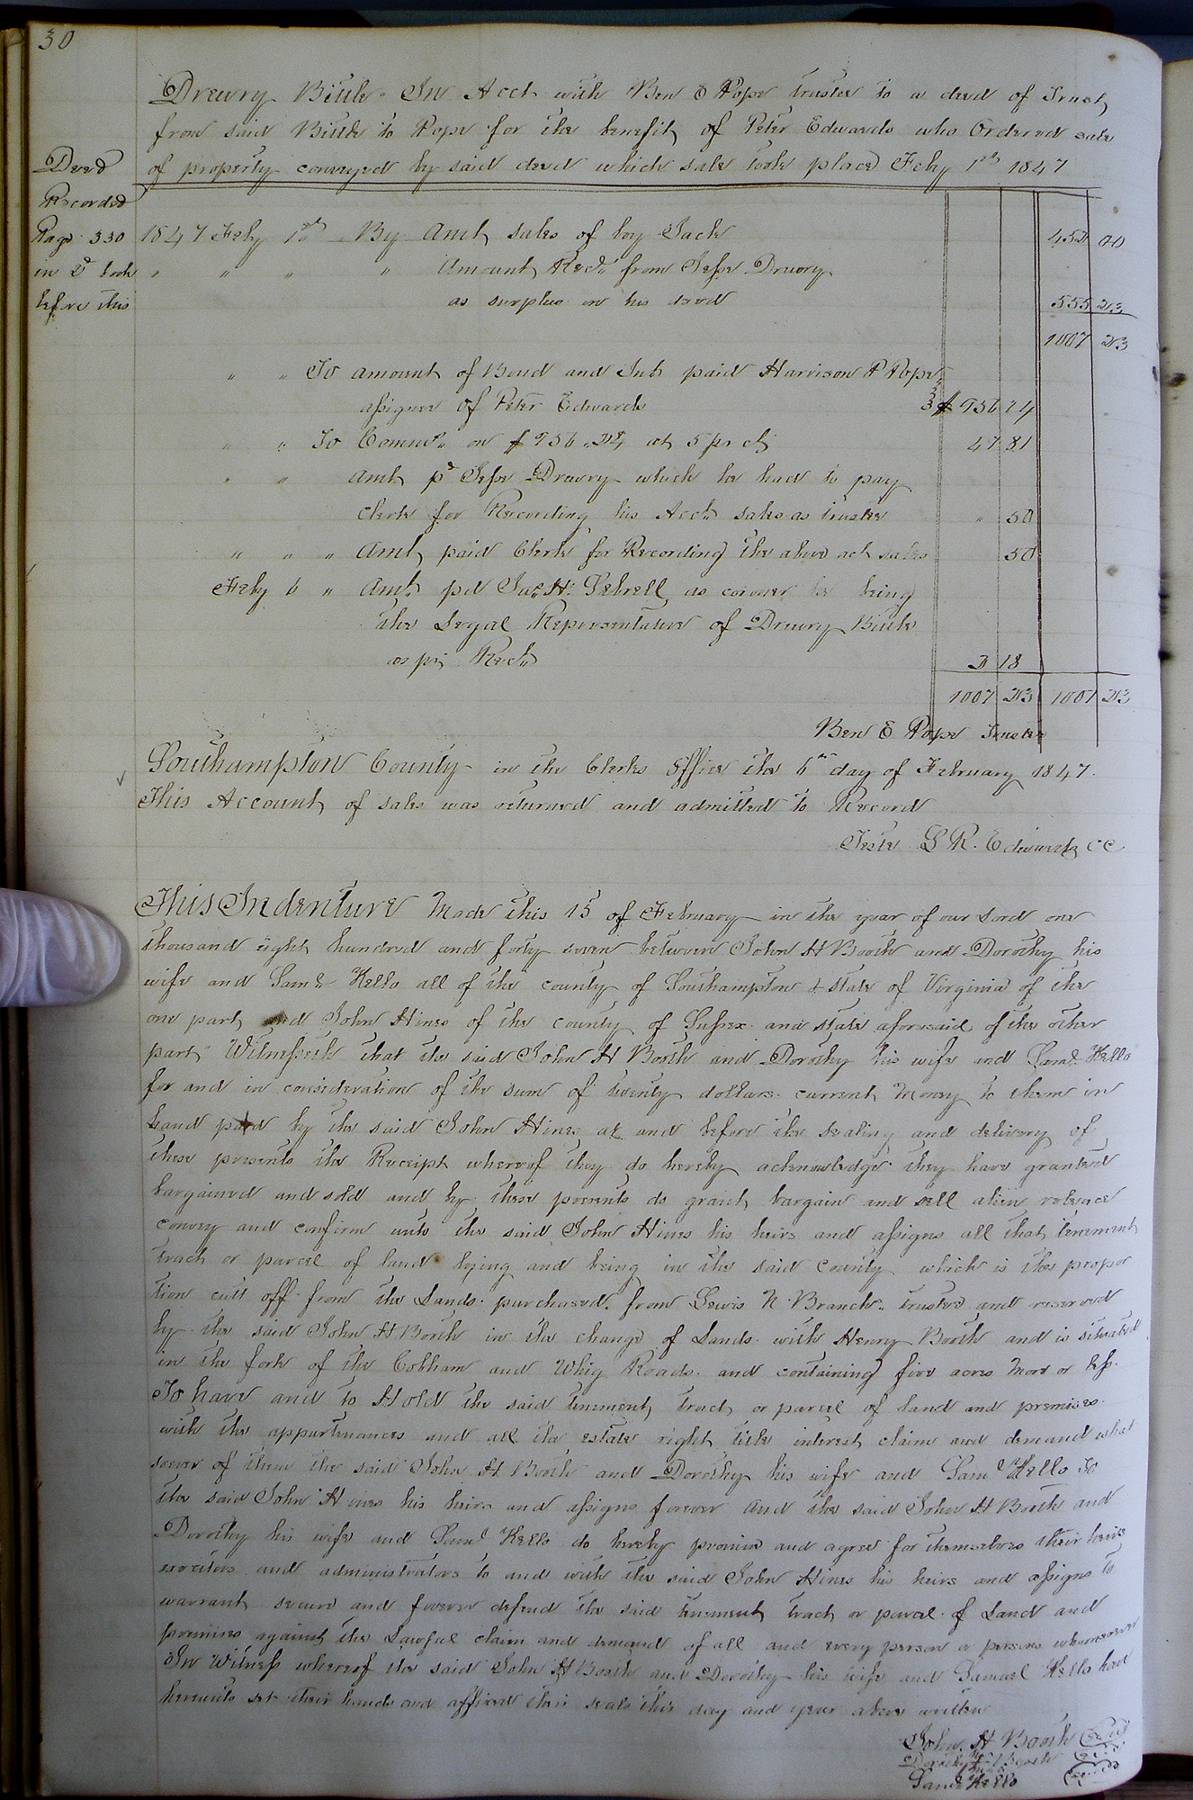 30
Drewry Bittle In Acct with Ben E Pope trustee to a deed of Trust
from said Bittle to Pope for the benefit of Peter Edwards who Ordered sale
of property conveyed by said deed which sale took place Feby 1st 1847
Deed
Recorded
Page 330
in Dd book
before this
1847 Feby 1st By Amt sales of boy Jack 452 00
" " " " Amount Recd from Jesse Drewry
as surplus on his deed 555 23
1007 23
" " To amount of Bond and Int paid Harrison P Pope
assignee of Peter Edwards $ 956 24
" " To Commn on $ 956.24 at 5 pr ct 47 81
" " Amt pd Jesse Drewry which he had to pay
Clerk for Recording his Acct sales as trustee " 50
" " " Amt paid Clerk for Recording the above act sales 50
Feby 6 " Amt pd Jas H. Sebrell as coroner he being
the Legal Representative of Drewry Bittle
as pr Rect 2 18
1007 23 1007 23
Ben E Pope Trustee
Southampton County in the Clerks Office the 6th day of February 1847.
This Account of sales was returned and admitted to Record
Teste L R. Edwards CC
This Indenture Made this 15 of February in the year of our Lord one
thousand eight hundred and forty seven between John H Booth and Dorothy his
wife and Saml Kello all of the county of Southampton & state of Virginia of the
one part and John Hines of the county of Sussex and state aforesaid of the other
part Witnesseth that the said John H Booth and Dorothy his wife and Saml Kello
for and in consideration of the sum of twenty dollars current money to them in
hand paid by the said John Hines at and before the sealing and delivery of
these presents the Receipt whereof they do hereby acknowledge they have granted
bargained and sold and by these presents do grant bargain and sell alien release
convey and confirm unto the said John Hines his heirs and assigns all that tenement
tract or parcel of land lying and being in the said county which is the propor
tion cutt off from the Lands purchased from Lewis N. Branch trustee and reserved
by the said John H Booth in the change of Lands with Henry Booth and is situated
in the fork of the Cobham and Whig Roads and containing five acres more or less.
To have and to Hold the said tenement tract or parcel of land and premises
with the appurtenances and all the estate right title interest claim and demand what
soever of them the said John H Booth and Dorothy his wife and Saml Kello To
the said John Hines his heirs and assigns forever And the said John H Booth and
Dorothy his wife and Saml Kello do hereby promise and agree for themselves their heirs
executors and administrators to and with the said John Hines his heirs and assigns to
warrant secure and forever defend the said tenement tract or parcel of Land and
premises against the Lawful claim and demand of all and every person or persons whomsoever
In Witness whereof the said John H Booth and Dorothy his wife and Samuel Kello have
hereunto set their hands and affixed their seals this day and year above written
John H Booth Seal
Dorothy Booth Seal
Saml Kello Seal